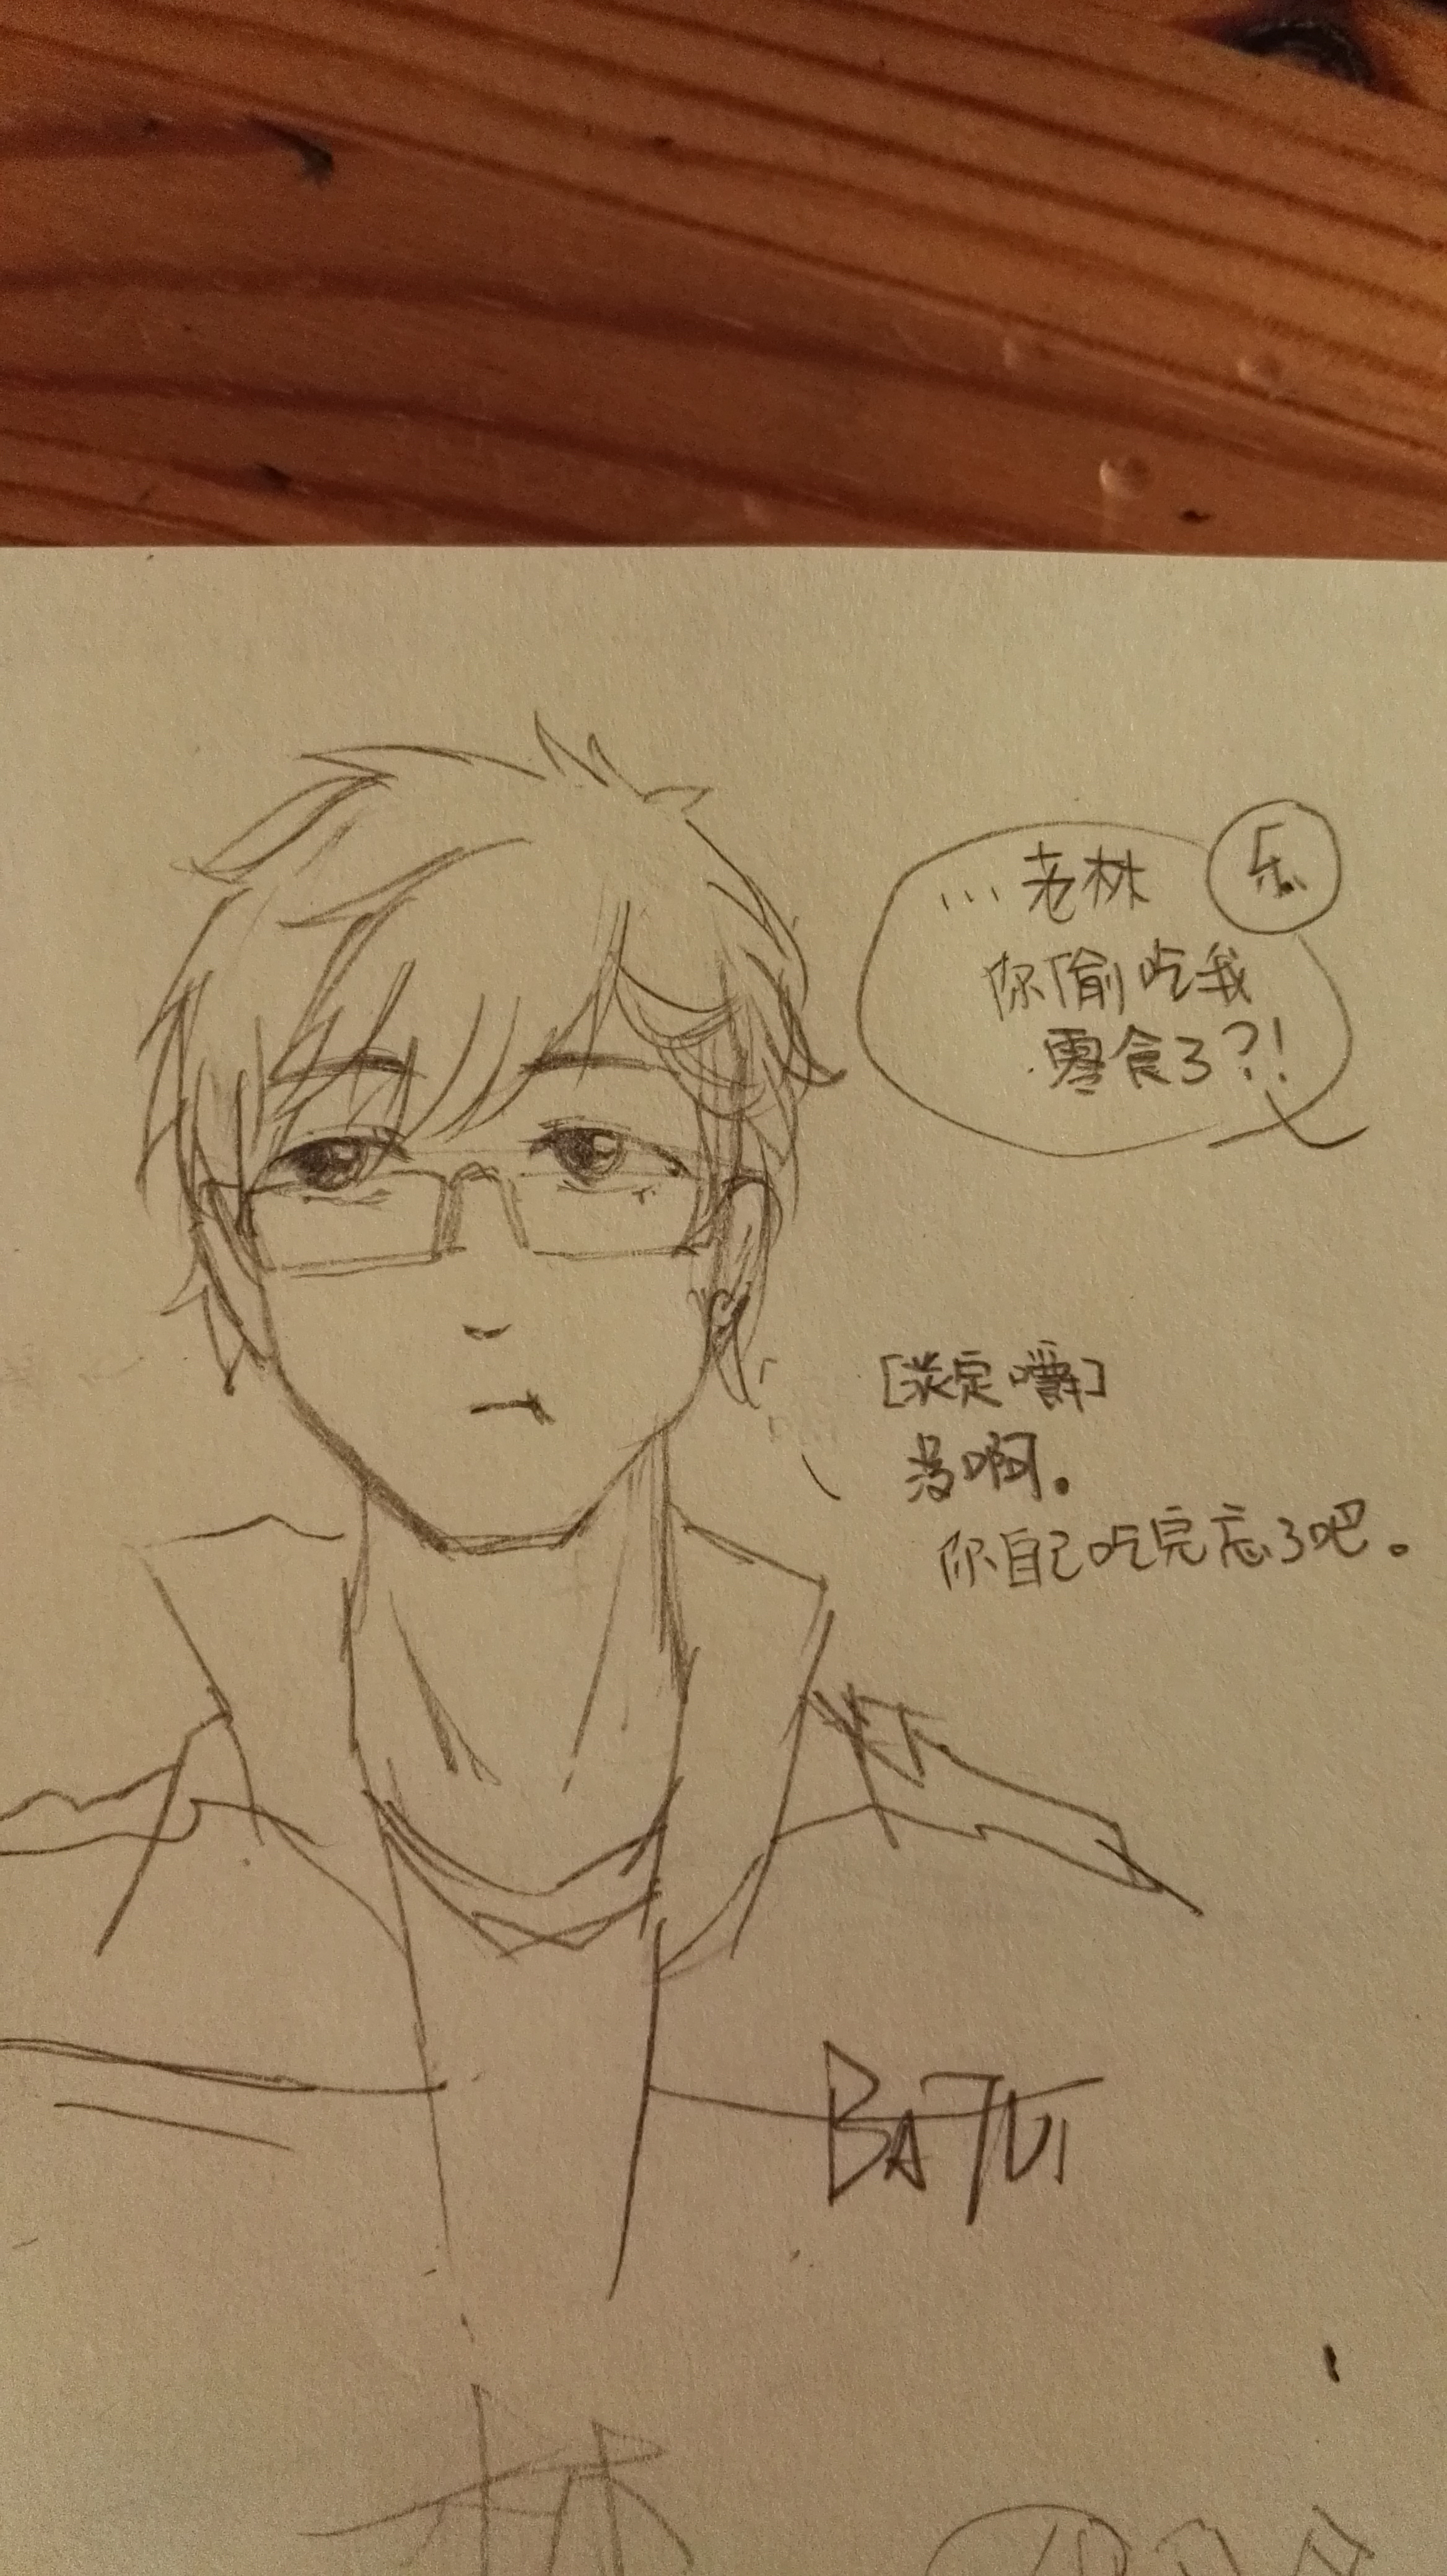 乐
...老林
你偷吃我
零食了?!
[淡定嚼]
没啊。
你自己吃完忘了吧。
BATUI
林